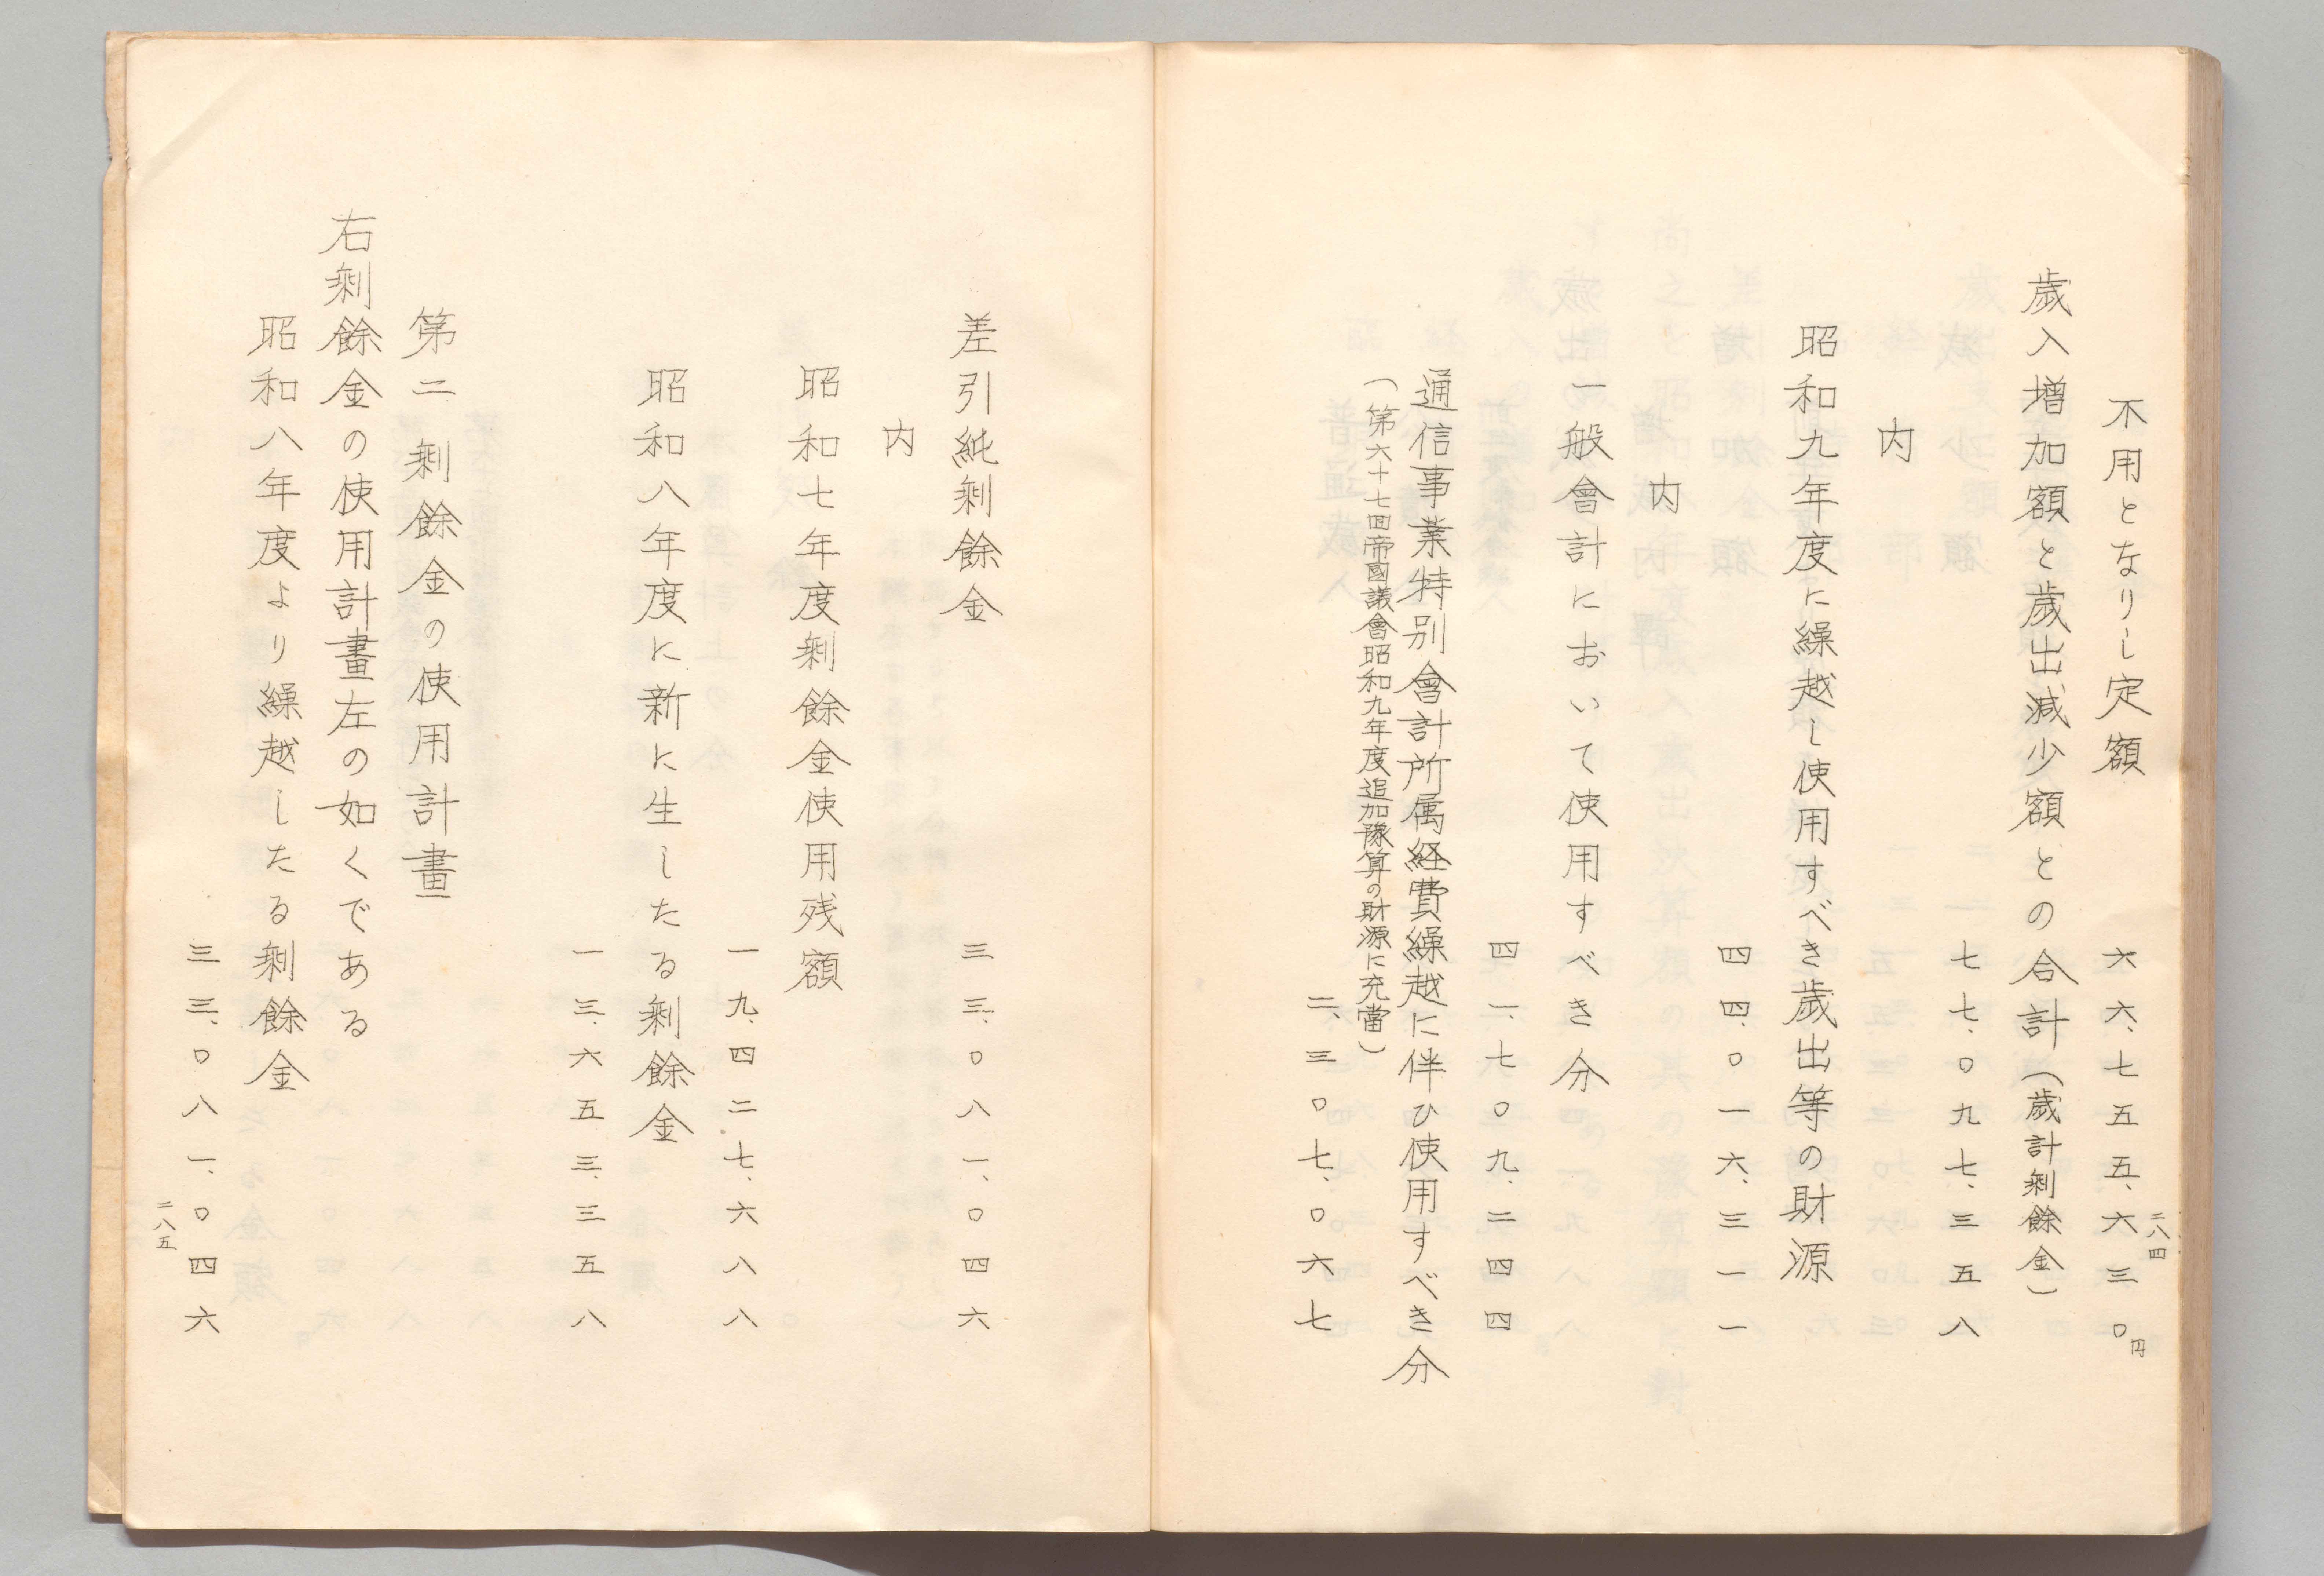 二八四
不用となりし定額
六六、七五五、六三〇円
歳入増加額と歳出減少額との合計(歳計剰餘金)
七七、〇九七、三五八
内
昭和九年度に繰越し使用すべき歳出等の財源
四四、〇一六、三一一
内
一般會計において使用すべき分
四一、七〇九、二四四
通信事業特別會計所属経費繰越に伴ひ使用すべき分
(第六十七回帝國議會昭和九年度追加豫算の財源に充當)
二、三〇七、〇六七
差引純剰餘金
三三、〇八一、〇四六
内
昭和七年度剰餘金使用残額
一九、四二七、六八八
昭和八年度に新に生したる剰餘金
一三、六五三、三五八
第二 剰餘金の使用計畫
右剰餘金の使用計畫左の如くである
昭和八年度より繰越したる剰餘金
三三、〇八一、〇四六
二八五